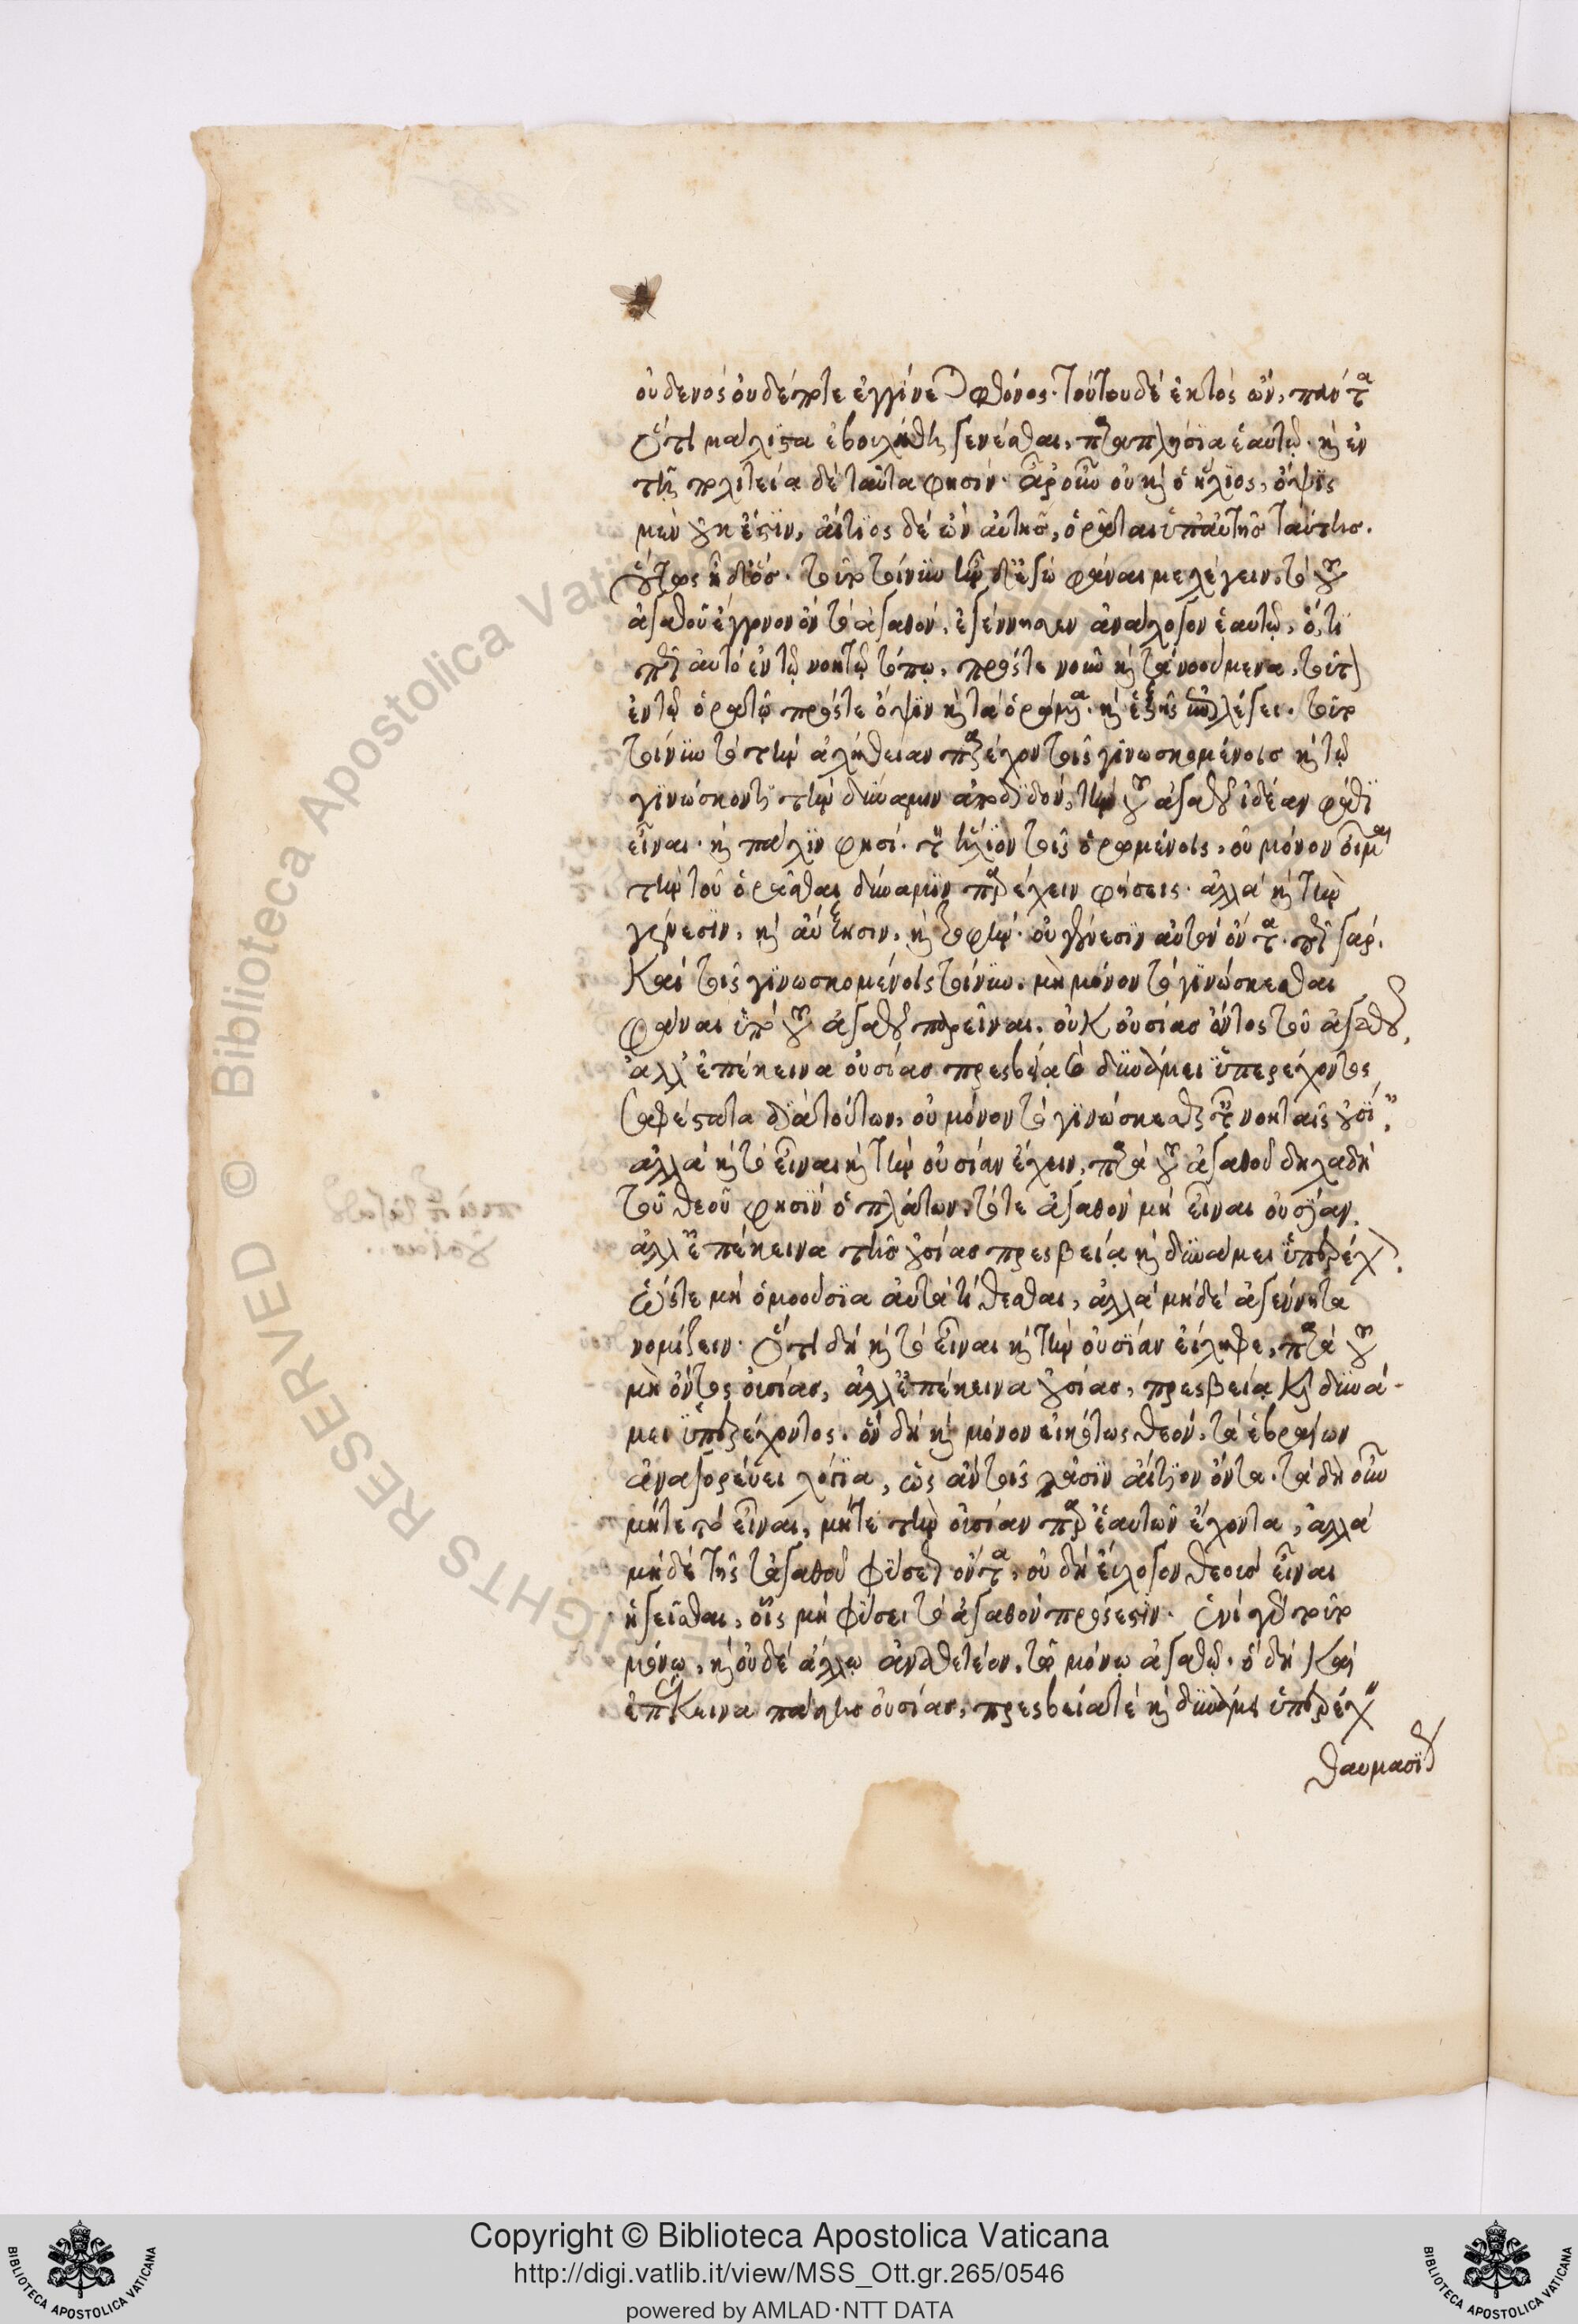 οὐδενὸς οὐδέποτε ἐγγίνεται φθόνος· τούτου δὲ ἐκτὸς ὢν, πάντα
ὅτι μάλιστα ἐβουλήθη γενέσθαι, παραπλήσια ἑαυτῷ· καὶ ἐν
τῇ πολιτείᾳ δὲ ταῦτα φησίν· ἆρ' οὖν οὐ καὶ ὁ ἥλιος, ὄψις
μὲν οὐκ ἔστιν, αἴτιος δὲ ὢν αὐτῆς, ὁρᾶται ὑπ' αὐτῆς ταύτης.
οὕτως ἦ δ' ὅς. τοῦτον τοίνυν ἦν δ' ἐγὼ φάναι με λέγειν, τὸν τοῦ
ἀγαθοῦ ἔγγονον ὃν τὸ ἀγαθὸν, ἐγέννησεν ἀνάλογον ἑαυτῷ, ὅ,τι
περ αὐτὸ ἐν τῷ νοητῷ τόπῳ, πρός τε νοῦν καὶ τὰ νοούμενα, τοῦτο
ἐν τῷ ὁρατῷ πρός τε ὄψιν καὶ τὰ ὁρώμενα. καὶ ἑξῆς ἐπιλέγει. τοῦτο
τοίνυν τὸ τὴν ἀλήθειαν παρέχον τοῖς γινωσκομένοις καὶ τῷ
γινώσκοντι τὴν δύναμιν ἀποδιδόν, τὴν τοῦ ἀγαθοῦ ἰδέαν φάθι
εἶναι. καὶ πάλιν φησί. τὸν ἥλιον τοῖς ὁρωμένοις, οὐ μόνον οἶμαι
τὴν τοῦ ὁρᾶσθαι δύναμιν παρέχειν φήσεις. ἀλλὰ καὶ τὴν
γένεσιν, καὶ αὔξησιν, καὶ τροφήν. οὐ γένεσιν αὐτὸν ὄντα. πῶς γάρ.
Καὶ τοῖς γινωσκομένοις τοίνυν. μὴ μόνον τὸ γινώσκεσθαι
φάναι ὑπὸ τοῦ ἀγαθοῦ παρεῖναι. οὐκ οὐσίας ὄντος τοῦ ἀγαθοῦ,
ἀλλ' ἐπέκεινα οὐσίας πρεσβείᾳ καὶ δυνάμει ὑπερέχοντος
σαφέστατα διὰ τούτων, οὐ μόνον τὸ γινώσκεσθαι τὰς νοητὰς οὐσίας,
ἀλλὰ καὶ τὸ εἶναι καὶ τὴν οὐσίαν ἔχειν, παρὰ τοῦ ἀγαθοῦ δηλαδὴ
τοῦ θεοῦ φησὶν ὁ πλάτων. τό τε ἀγαθὸν μὴ εἶναι οὐσίαν.
ἀλλ' ἐπέκεινα τῆς οὐσίας πρεσβείᾳ καὶ δυνάμει ὑπερέχον.
ὥστε μὴ ὁμοούσια αὐτὰ τίθεσθαι, ἀλλὰ μηδὲ ἀγέννητα
νομίζειν. ὅτι δὴ καὶ τὸ εἶναι καὶ τὴν οὐσίαν εἴληφε, παρὰ τοῦ
μὴ ὄντος οὐσίας, ἀλλ' ἐπέκεινα οὐσίας, πρεσβείᾳ καὶ δυνά-
μει ὑπερέχοντος. ὃν δὴ καὶ μόνον εἰκότως θεόν, τὰ ἑβραίων
ἀναγορεύει λόγια, ὡς ἂν τοῖς πᾶσιν αἴτιον ὄντα. τὰ δὴ οὖν
μήτε τὸ εἶναι, μήτε τὴν οὐσίαν παρ' ἑαυτῶν ἔχοντα, ἀλλὰ
μηδὲ τῆς τἀγαθοῦ φύσεως ὄντα, οὐ δὴ εὔλογον θεοὺς εἶναι
ἡγεῖσθαι, οἷς μὴ φύσει τὸ ἀγαθὸν πρόσεστιν. ἑνὶ δὲ τοῦτο
μόνῳ, καὶ οὐδὲ ἄλλῳ ἀναθετέον, τῷ μόνῳ ἀγαθῷ. ὃ δὴ καὶ
ἐπέκεινα πάσης οὐσίας, πρεσβείᾳ τὲ καὶ δυνάμει ὑπερέχον
θαυμασίου
Copyright © Biblioteca Apostolica Vaticana
http://digi.vatlib.it/view/MSS_Ott.gr.265/0546
powered by AMLAD·NTT DATA